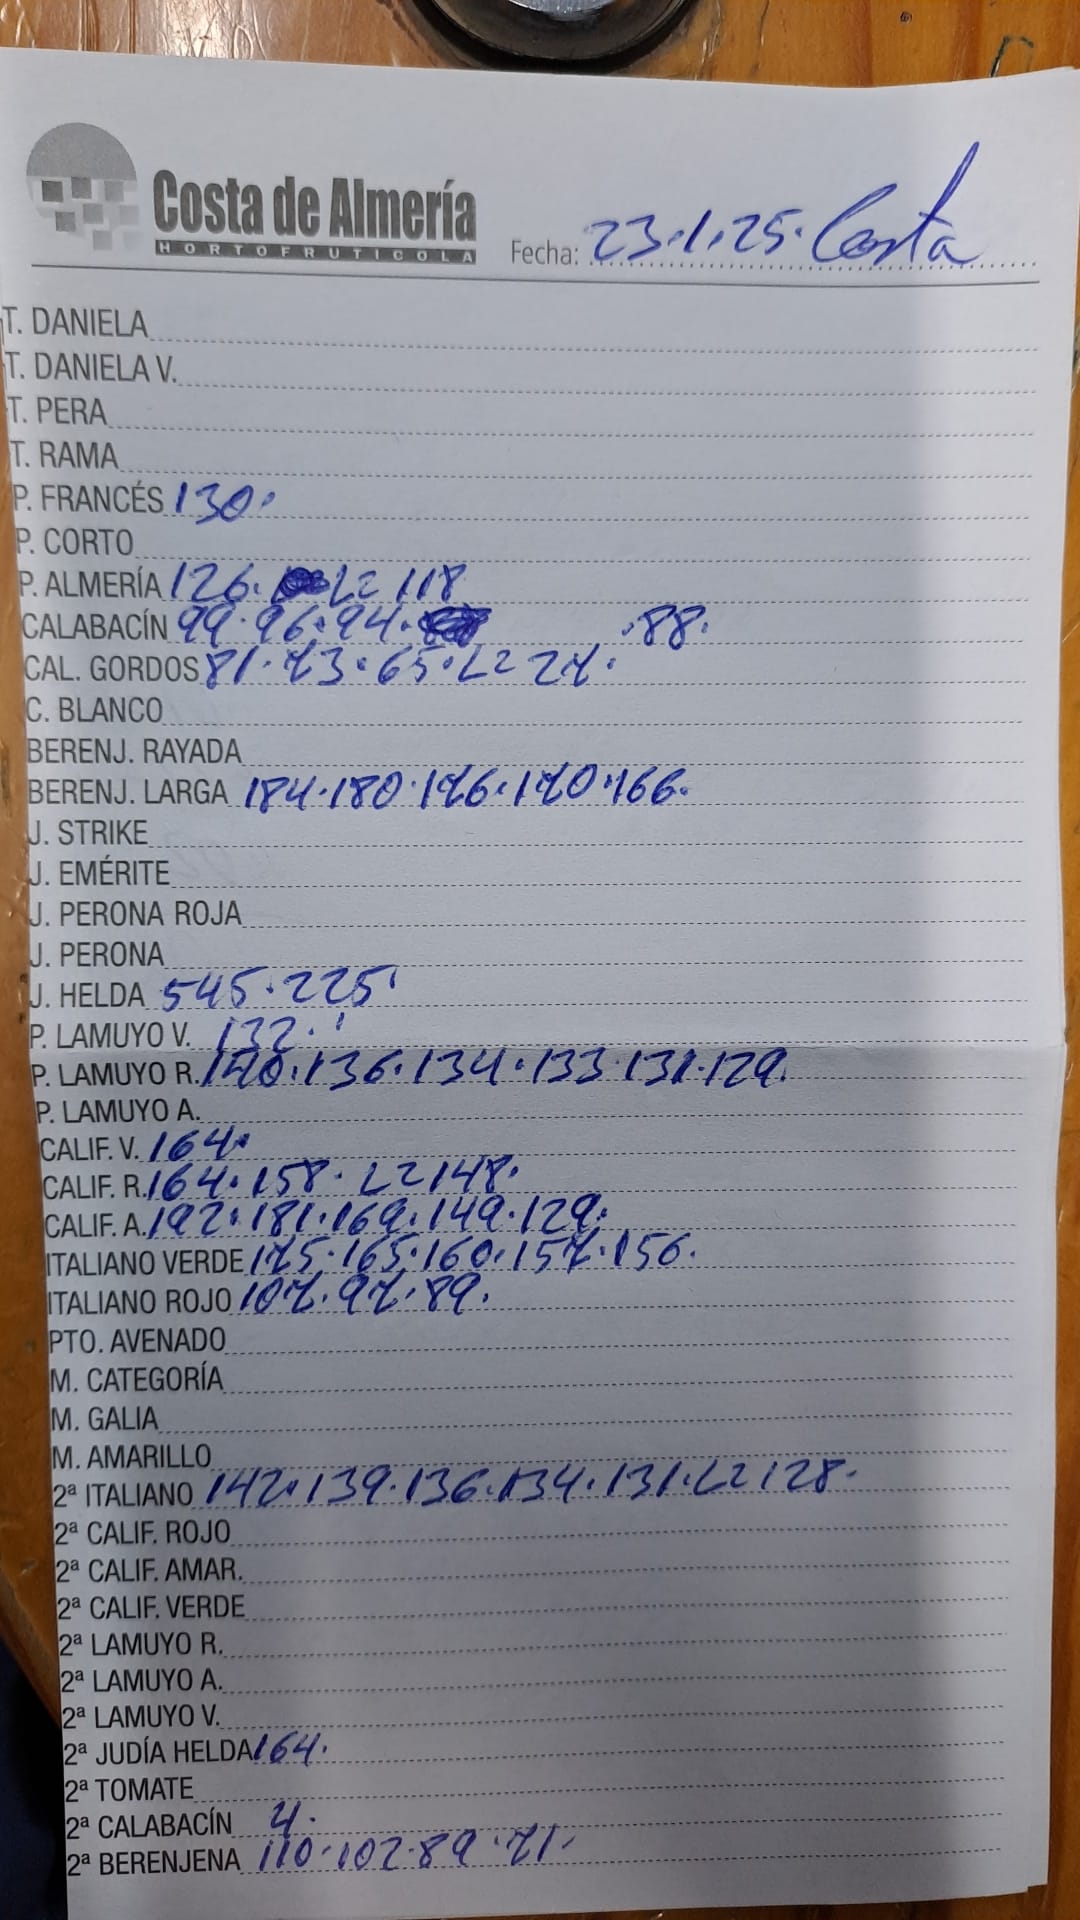 Costa de Almería
HORTOFRUTICOLA
Fecha: 23.1.25. Costa
T. DANIELA
T. DANIELA V.
T. PERA
T. RAMA
P. FRANCÉS 130.
P. CORTO
P. ALMERÍA 126. L2 118
CALABACÍN 99.96.94. .88.
CAL. GORDOS 81.73.65.L2 27.
C. BLANCO
BERENJ. RAYADA
BERENJ. LARGA 184.180.176.170.166.
J. STRIKE
J. EMÉRITE
J. PERONA ROJA
J. PERONA
J. HELDA 545.225.
P. LAMUYO V. 132.
P. LAMUYO R. 140.136.134.133.131.129.
P. LAMUYO A.
CALIF. V. 164.
CALIF. R. 164.158. L2 148.
CALIF. A. 192.181.169.149.129.
ITALIANO VERDE 175.165.160.157.156.
ITALIANO ROJO 107.97.89.
PTO. AVENADO
M. CATEGORÍA
M. GALIA
M. AMARILLO
2ª ITALIANO 142.139.136.134.131.L2 128.
2ª CALIF. ROJO
2ª CALIF. AMAR.
2ª CALIF. VERDE
2ª LAMUYO R.
2ª LAMUYO A.
2ª LAMUYO V.
2ª JUDÍA HELDA 164.
2ª TOMATE
2ª CALABACÍN 4.
2ª BERENJENA 110.102.89.71.